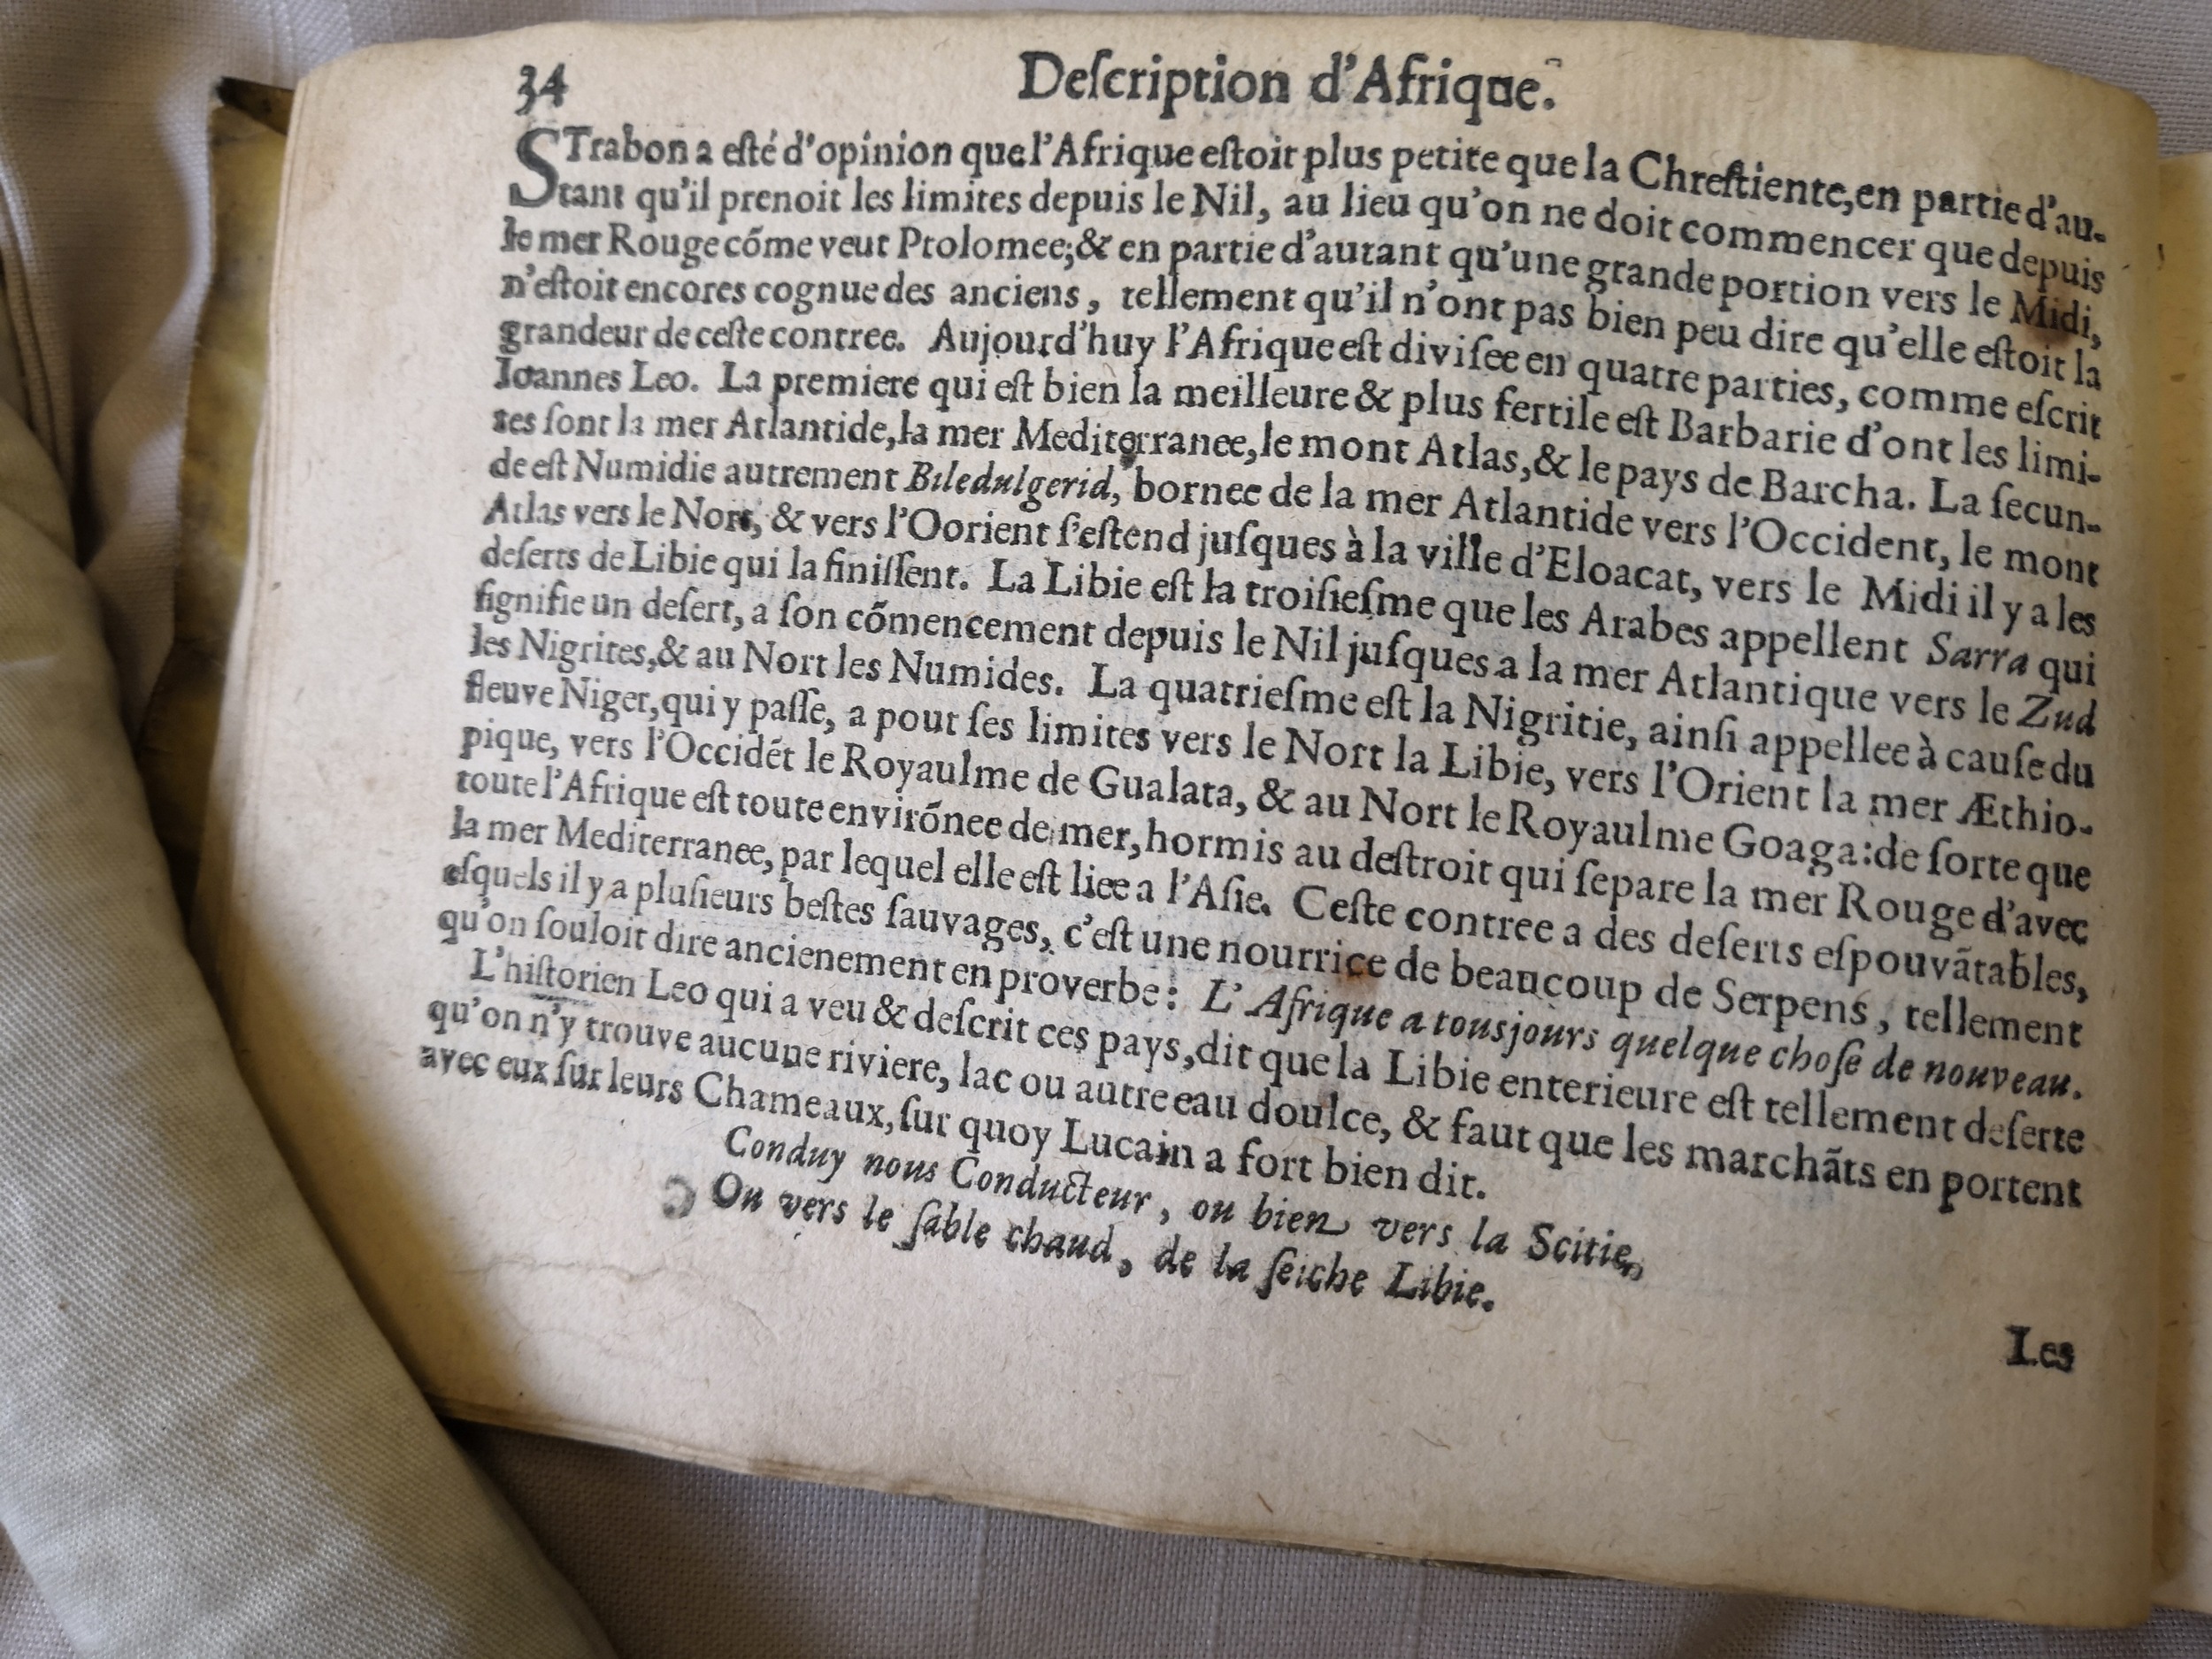 34
Deſcription d'Afrique.
STrabon a eſté d'opinion que l'Afrique eſtoit plus petite que la Chreſtiente, en partie d'au-
tant qu'il prenoit les limites depuis le Nil, au lieu qu'on ne doit commencer que depuis
le mer Rouge cõme veut Ptolomee; & en partie d'autant qu'une grande portion vers le Midi,
n'eſtoit encores cognue des anciens, tellement qu'il n'ont pas bien peu dire qu'elle eſtoit la
grandeur de ceſte contree. Aujourd'huy l'Afrique eſt diviſee en quatre parties, comme eſcrit
Ioannes Leo. La premiere qui eſt bien la meilleure & plus fertile eſt Barbarie d'ont les limi-
tes ſont la mer Atlantide, la mer Mediterranee, le mont Atlas, & le pays de Barcha. La ſecun-
de eſt Numidie autrement Biledulgerid, bornee de la mer Atlantide vers l'Occident, le mont
Atlas vers le Nort, & vers l'Oorient ſ'eſtend juſques à la ville d'Eloacat, vers le Midi il y a les
deſerts de Libie qui la finiſſent. La Libie eſt la troiſieſme que les Arabes appellent Sarra qui
ſignifie un deſert, a ſon cõmencement depuis le Nil juſques a la mer Atlantique vers le Zud
les Nigrites, & au Nort les Numides. La quatrieſme eſt la Nigritie, ainſi appellee à cauſe du
fleuve Niger, qui y paſſe, a pour ſes limites vers le Nort la Libie, vers l'Orient la mer Æthio-
pique, vers l'Occidẽt le Royaulme de Gualata, & au Nort le Royaulme Goaga: de ſorte que
toute l'Afrique eſt toute envirõnee de mer, hormis au deſtroit qui ſepare la mer Rouge d'avec
la mer Mediterranee, par lequel elle eſt liee a l'Aſie. Ceſte contree a des deſerts eſpouvãtables,
eſquels il y a pluſieurs beſtes ſauvages, c'eſt une nourrice de beaucoup de Serpens, tellement
qu'on ſouloit dire ancienement en proverbe: L'Afrique a tousjours quelque choſe de nouveau.
L'hiſtorien Leo qui a veu & deſcrit ces pays, dit que la Libie enterieure eſt tellement deſerte
qu'on n'y trouve aucune riviere, lac ou autre eau doulce, & faut que les marchãts en portent
avec eux ſur leurs Chameaux, ſur quoy Lucain a fort bien dit.
Conduy nous Conducteur, ou bien vers la Scitie,
Ou vers le ſable chaud, de la ſeiche Libie.
Les